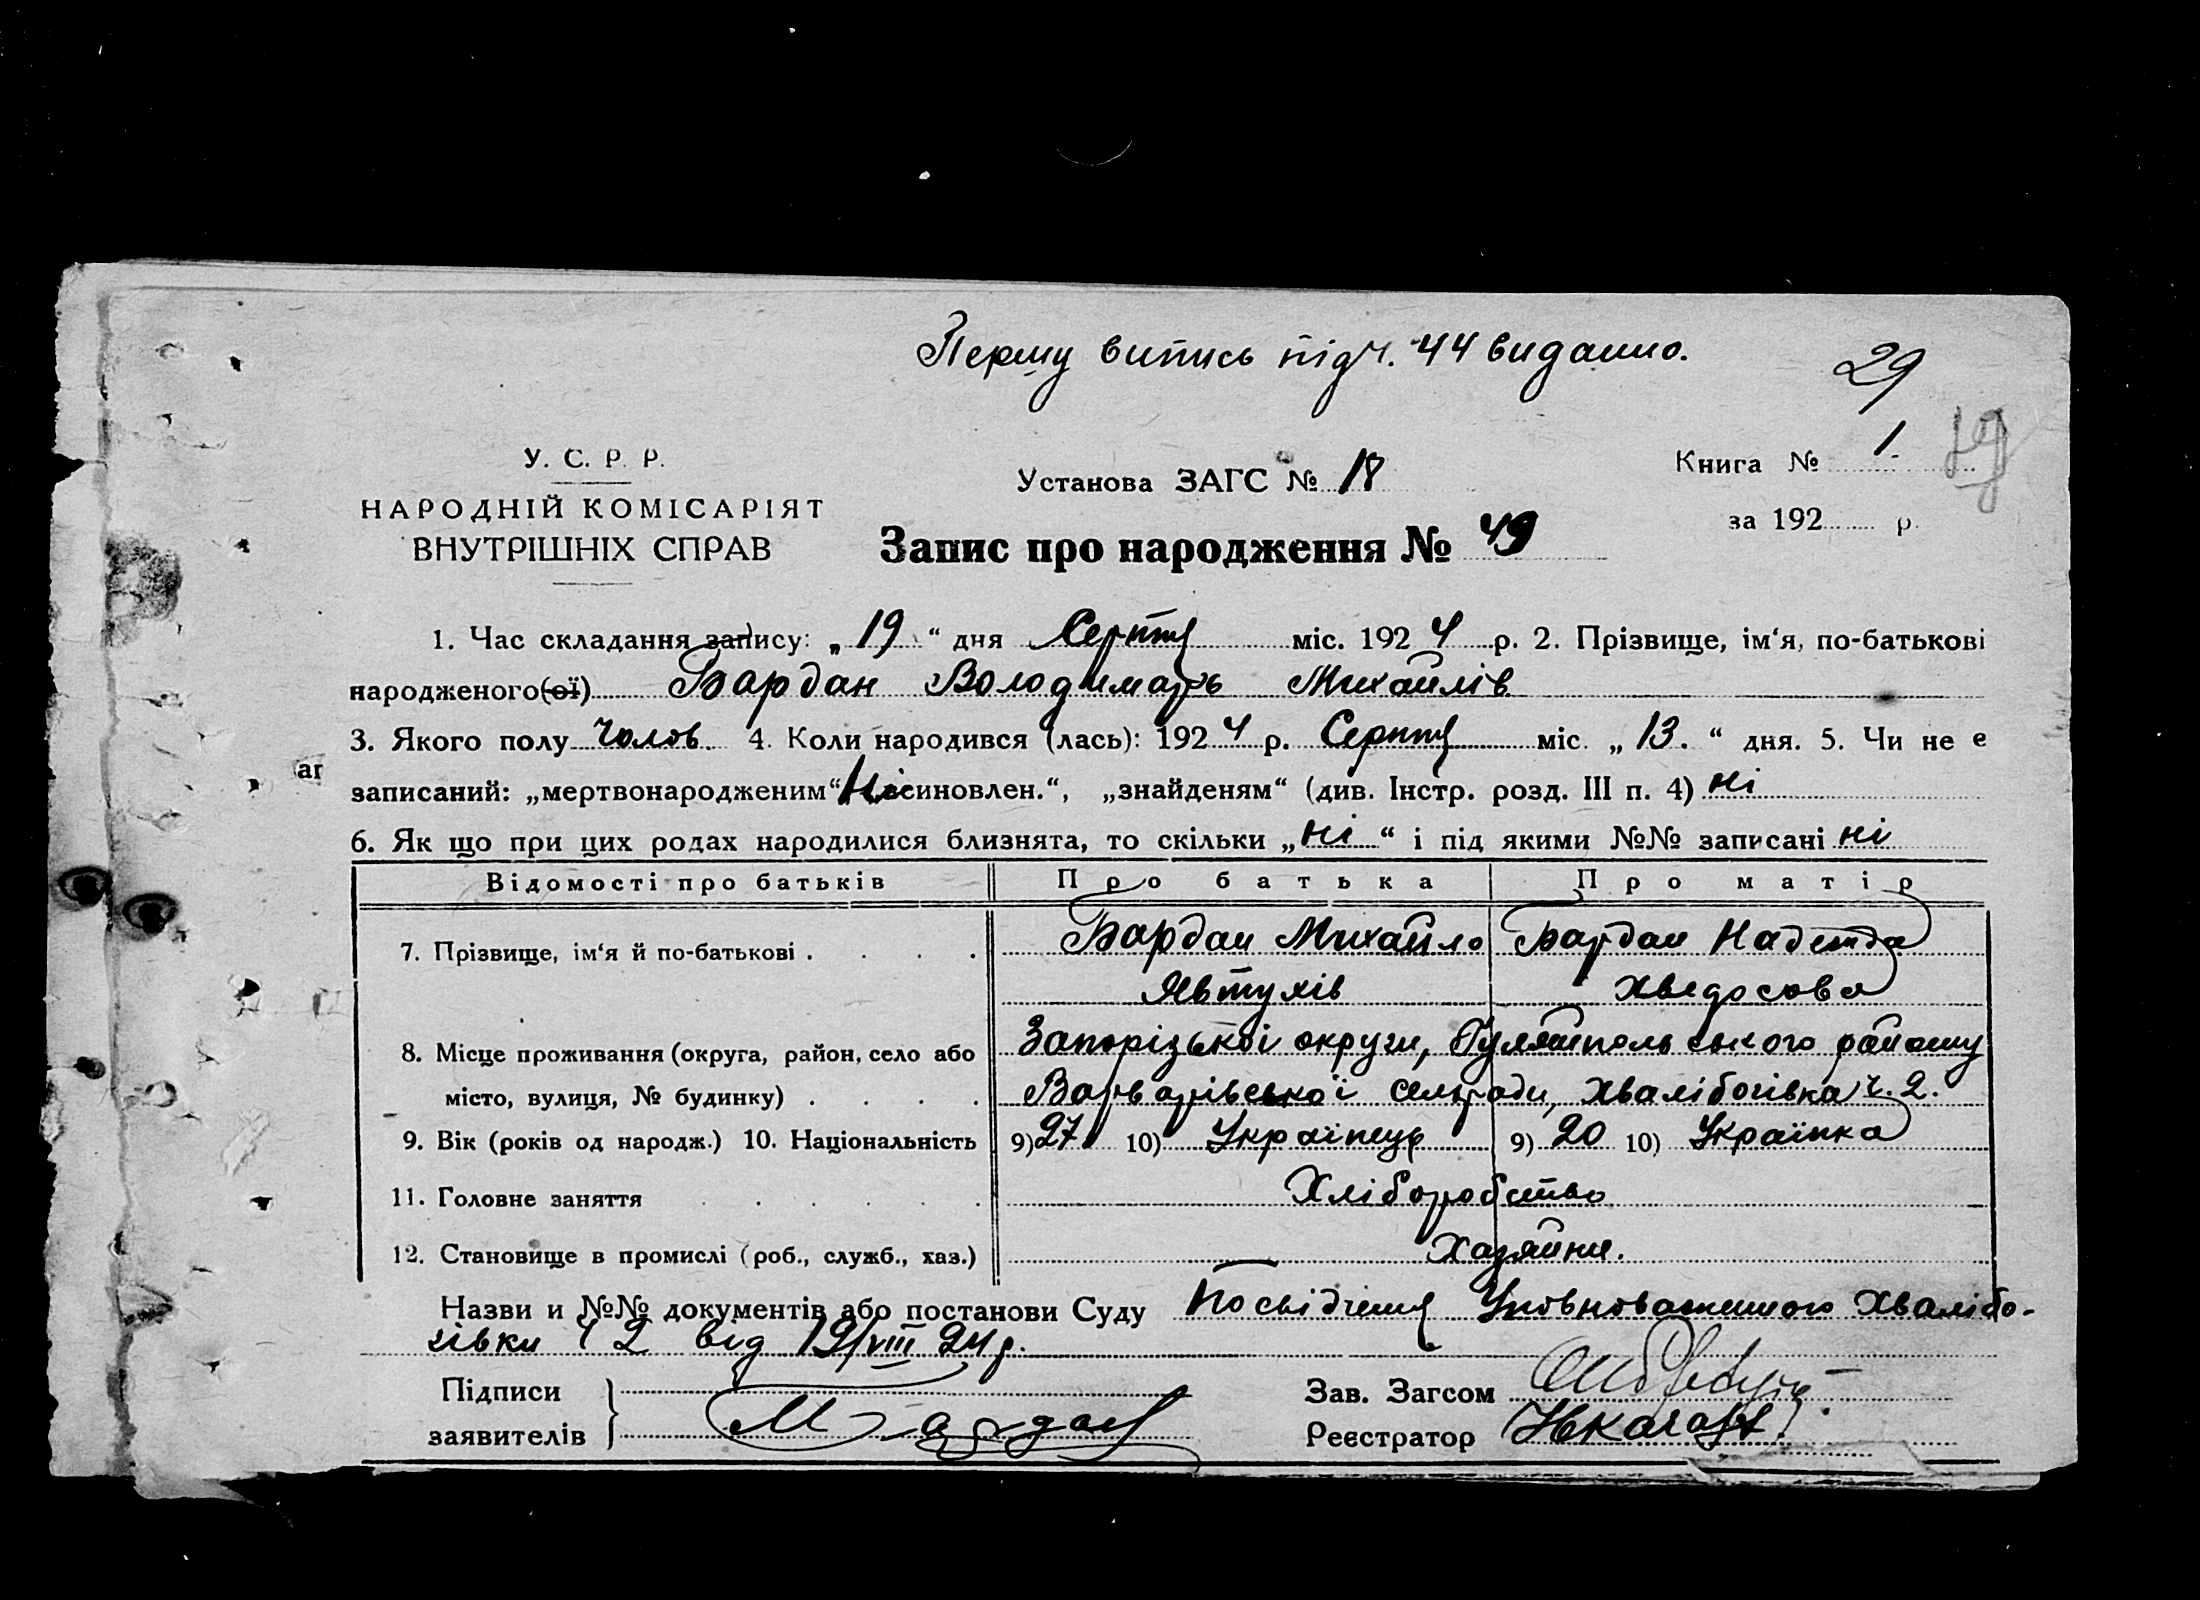 Першу випись під ч. 44 видано.
29
У. С. Р. Р.
НАРОДНІЙ КОМІСАРІЯТ
ВНУТРІШНІХ СПРАВ
Установа ЗАГС № 18
Книга № 1
за 192 р.
Запис про народження № 49
1. Час складання запису: „ 19 “ дня Серпня міс. 1924 р. 2. Прізвище, ім‘я, по-батькові
народженого(ої) Бардан Володимаръ Михайлів
3. Якого полу чолов. 4. Коли народився (лась): 1924 р. Серпня міс. „ 13. “ дня. 5. Чи не е
записаний: „мертвонародженим“ Ні „всиновлен.“, „знайденям“ (див. Інстр. розд. III п. 4) ні
6. Як що при цих родах народилися близнята, то скільки „ ні “ і під якими №№ записані ні
Відомості про батьків Про батька Про матір
7. Прізвище, ім‘я й по-батькові . . . . Бардан Михайло Бардан Надежда
Явтухів Хведосова
8. Місце проживання (округа, район, село або Запорізької округи, Гуляйпольського району
місто, вулиця, № будинку) . . . . Варварівської сельради, Хвалібогівка ч. 2.
9. Вік (років од народж.) 10. Національність 9) 27 10) Українець 9) 20 10) Українка
11. Головне заняття . . . . . Хліборобство
12. Становище в промислі (роб., служб., хаз.) Хазяйни.
Назви и №№ документів або постанови Суду Посвідчення Уповноваженого Хвалібо-
гівки ч 2 від 19/VIII 24 р.
Підписи
заявителів М Бардан
Зав. Загсом
Реєстратор